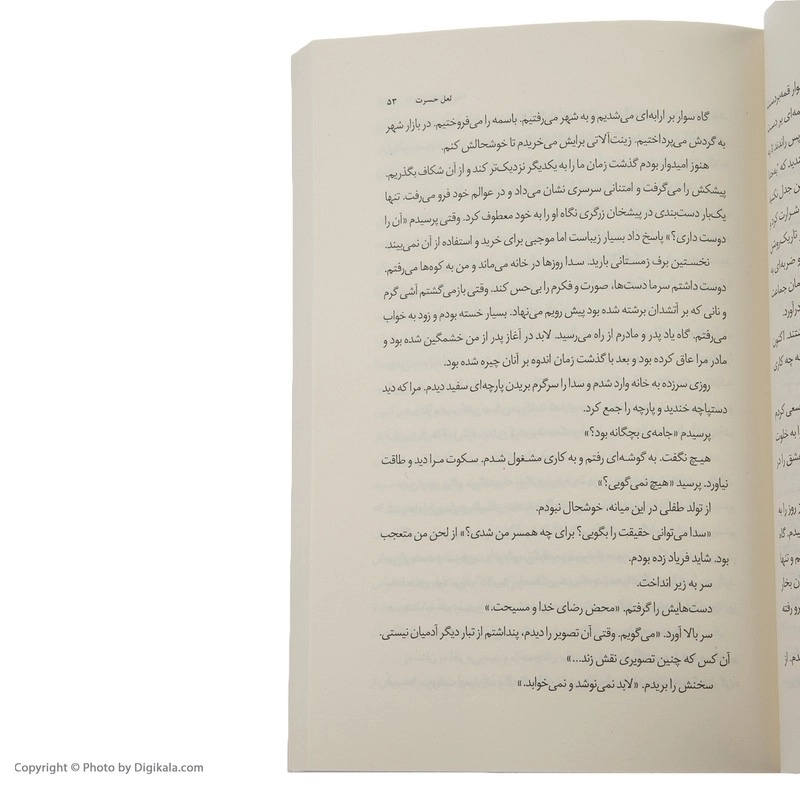 لعل حسرت ۵۳
گاه سوار بر ارابه‌ای می‌شدیم و به شهر می‌رفتیم. باسمه را می‌فروختیم. در بازار شهر
به گردش می‌پرداختیم. زینت‌آلاتی برایش می‌خریدم تا خوشحالش کنم.
هنوز امیدوار بودم گذشت زمان ما را به یکدیگر نزدیک‌تر کند و از آن شکاف بگذریم.
پیشکش را می‌گرفت و امتنانی سرسری نشان می‌داد و در عوالم خود فرو می‌رفت. تنها
یک‌بار دست‌بندی در پیشخان زرگری نگاه او را به خود معطوف کرد. وقتی پرسیدم «آن را
دوست داری؟» پاسخ داد بسیار زیباست اما موجبی برای خرید و استفاده از آن نمی‌بیند.
نخستین برف زمستانی بارید. سدا روزها در خانه می‌ماند و من به کوه‌ها می‌رفتم.
دوست داشتم سرما دست‌ها، صورت و فکرم را بی‌حس کند. وقتی بازمی‌گشتم آشی گرم
و نانی که بر آتشدان برشته شده بود پیش رویم می‌نهاد. بسیار خسته بودم و زود به خواب
می‌رفتم. گاه یاد پدر و مادرم از راه می‌رسید. لابد در آغاز پدر از من خشمگین شده بود و
مادر مرا عاق کرده بود و بعد با گذشت زمان اندوه بر آنان چیره شده بود.
روزی سرزده به خانه وارد شدم و سدا را سرگرم بریدن پارچه‌ای سفید دیدم. مرا که دید
دستپاچه خندید و پارچه را جمع کرد.
پرسیدم «جامه‌ی بچگانه بود؟»
هیچ نگفت. به گوشه‌ای رفتم و به کاری مشغول شدم. سکوت مرا دید و طاقت
نیاورد. پرسید «هیچ نمی‌گویی؟»
از تولد طفلی در این میانه، خوشحال نبودم.
«سدا می‌توانی حقیقت را بگویی؟ برای چه همسر من شدی؟» از لحن من متعجب
بود. شاید فریاد زده بودم.
سر به زیر انداخت.
دست‌هایش را گرفتم. «محض رضای خدا و مسیحت.»
سر بالا آورد. «می‌گویم. وقتی آن تصویر را دیدم، پنداشتم از تبار دیگر آدمیان نیستی.
آن کس که چنین تصویری نقش زند...»
سخنش را بریدم. «لابد نمی‌نوشد و نمی‌خوابد.»
Copyright © Photo by Digikala.com